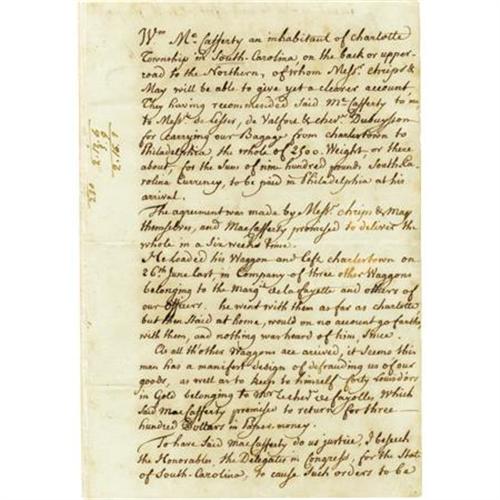 Wm. McCafferty an inhabitant of Charlotte
Township in South-Carolina on the back or upper
road to the Northern, of whom Messrs. chrips &
May will be able to give yet a clearer account
They having recommended Said McCafferty to me
to Messrs. de Lesser, de Valfore & chevr. Dubuysson
for Carrying our Bagage from charlestown to
Philadelphia, the whole of 2500. Weight or there
about, for the Sum of nine hundred pounds South Ca-
rolina Currency, to be paid in Philadelphia at his
arrival.
The agreement was made by Messrs. chrips & May
themselves, and MacCafferty promised to deliver the
whole in a Six weeks time.
He loaded his Waggon and Left charlestown on
26th. June last in Company of three other Waggons
belonging to the Marqs. de la fayette and others of
our officers. he went with them as far as charlotte
but then Staid at home, would on no account go farther
with them, and nothing was heard of him, Since.
As all th'other Waggons are arrived, it Seems this
man has a manifest design of defrauding us of our
goods, as well as to keep to himself forty Louisdors
in Gold belonging to de fayolles Which
Said MacCafferty promised to return for three
hundred Dollars in Paper-money.
To have Said MacCafferty do us justice, I beseech
the Honorables, the Delegates in Congress, for the State
of South-Carolina, to cause Such orders to be